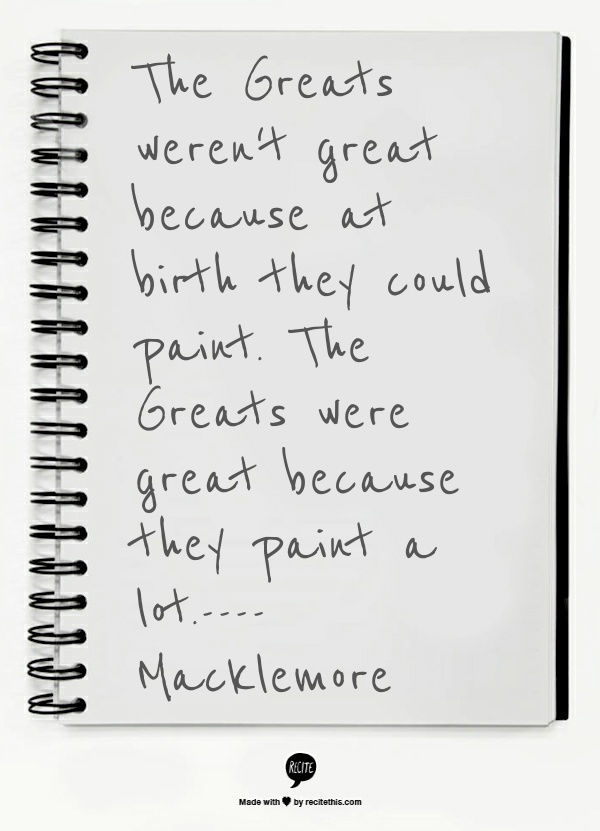 The Greats
weren't great
because at
birth they could
paint. The
Greats were
great because
they paint a
lot.----
Macklemore
RECITE
Made with ♥ by recitethis.com